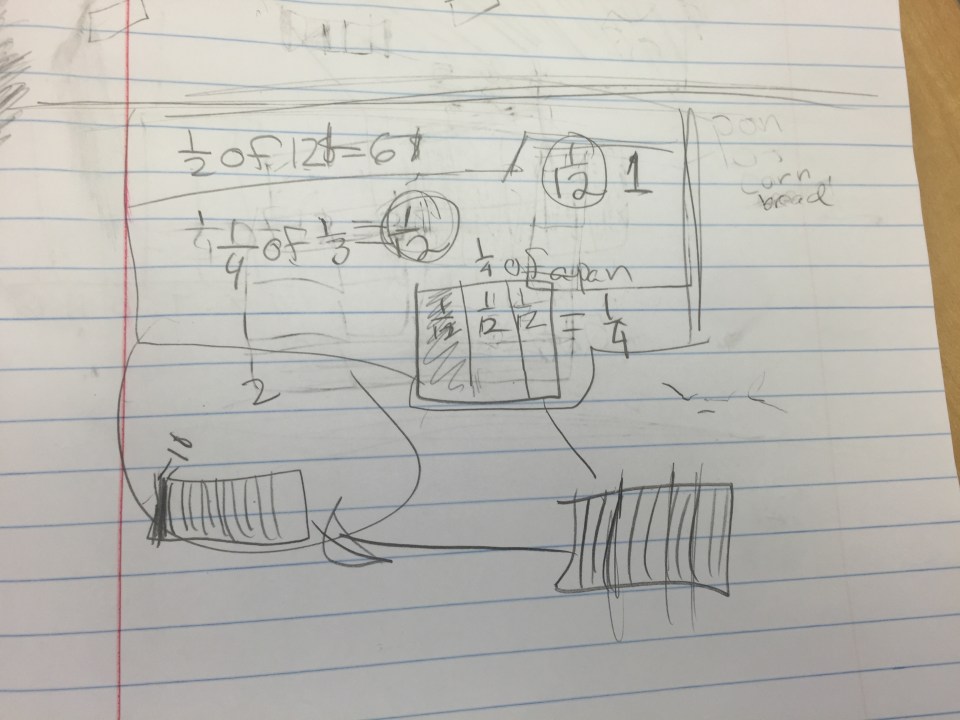 1/2 of 12$ = 6$
1/12 1
pan
corn
bread
1/4 of 1/3 = 1/12
1/4 of a pan
1/12 1/12 1/12 = 1/4
2